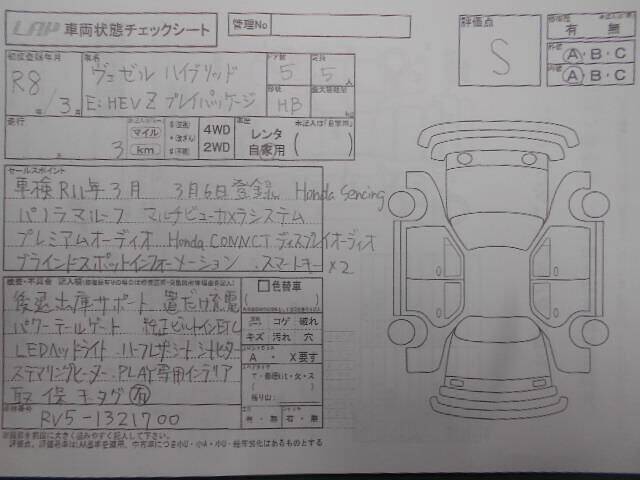 LAP 車両状態チェックシート 管理No
評価点 S
修復歴 有 無
外装 A・B・C
内装 A・B・C
初度登録年月 R8年/3月
車名 ヴェゼル ハイブリッド
E:HEV Z プレイパッケージ
ドア数 5
定員 5人
形状 HB
最大積載量 kg
走行 3 マイル km
4WD 2WD
車歴 レンタ 自家用
未記入は「自家用」
セールスポイント
車検 R11年3月 3月6日登録 Honda Sencing
パノラマルーフ マルチビューカメラシステム
プレミアムオーディオ Honda CONNCT ディスプレイオーディオ
ブラインドスポットインフォメーション スマートキー×2
後退出庫サポート 置だけ充電
パワーテールゲート 純正ビルトインETC
LEDヘッドライト ハーフレザーシート シートヒーター
ステアリングヒーター PLAY専用インテリア
取 保 キタグ 有
RV5-1321700
色替車
コゲ 破れ
キズ 汚れ 穴
A・ X要す
残り山:
有・無 有・無